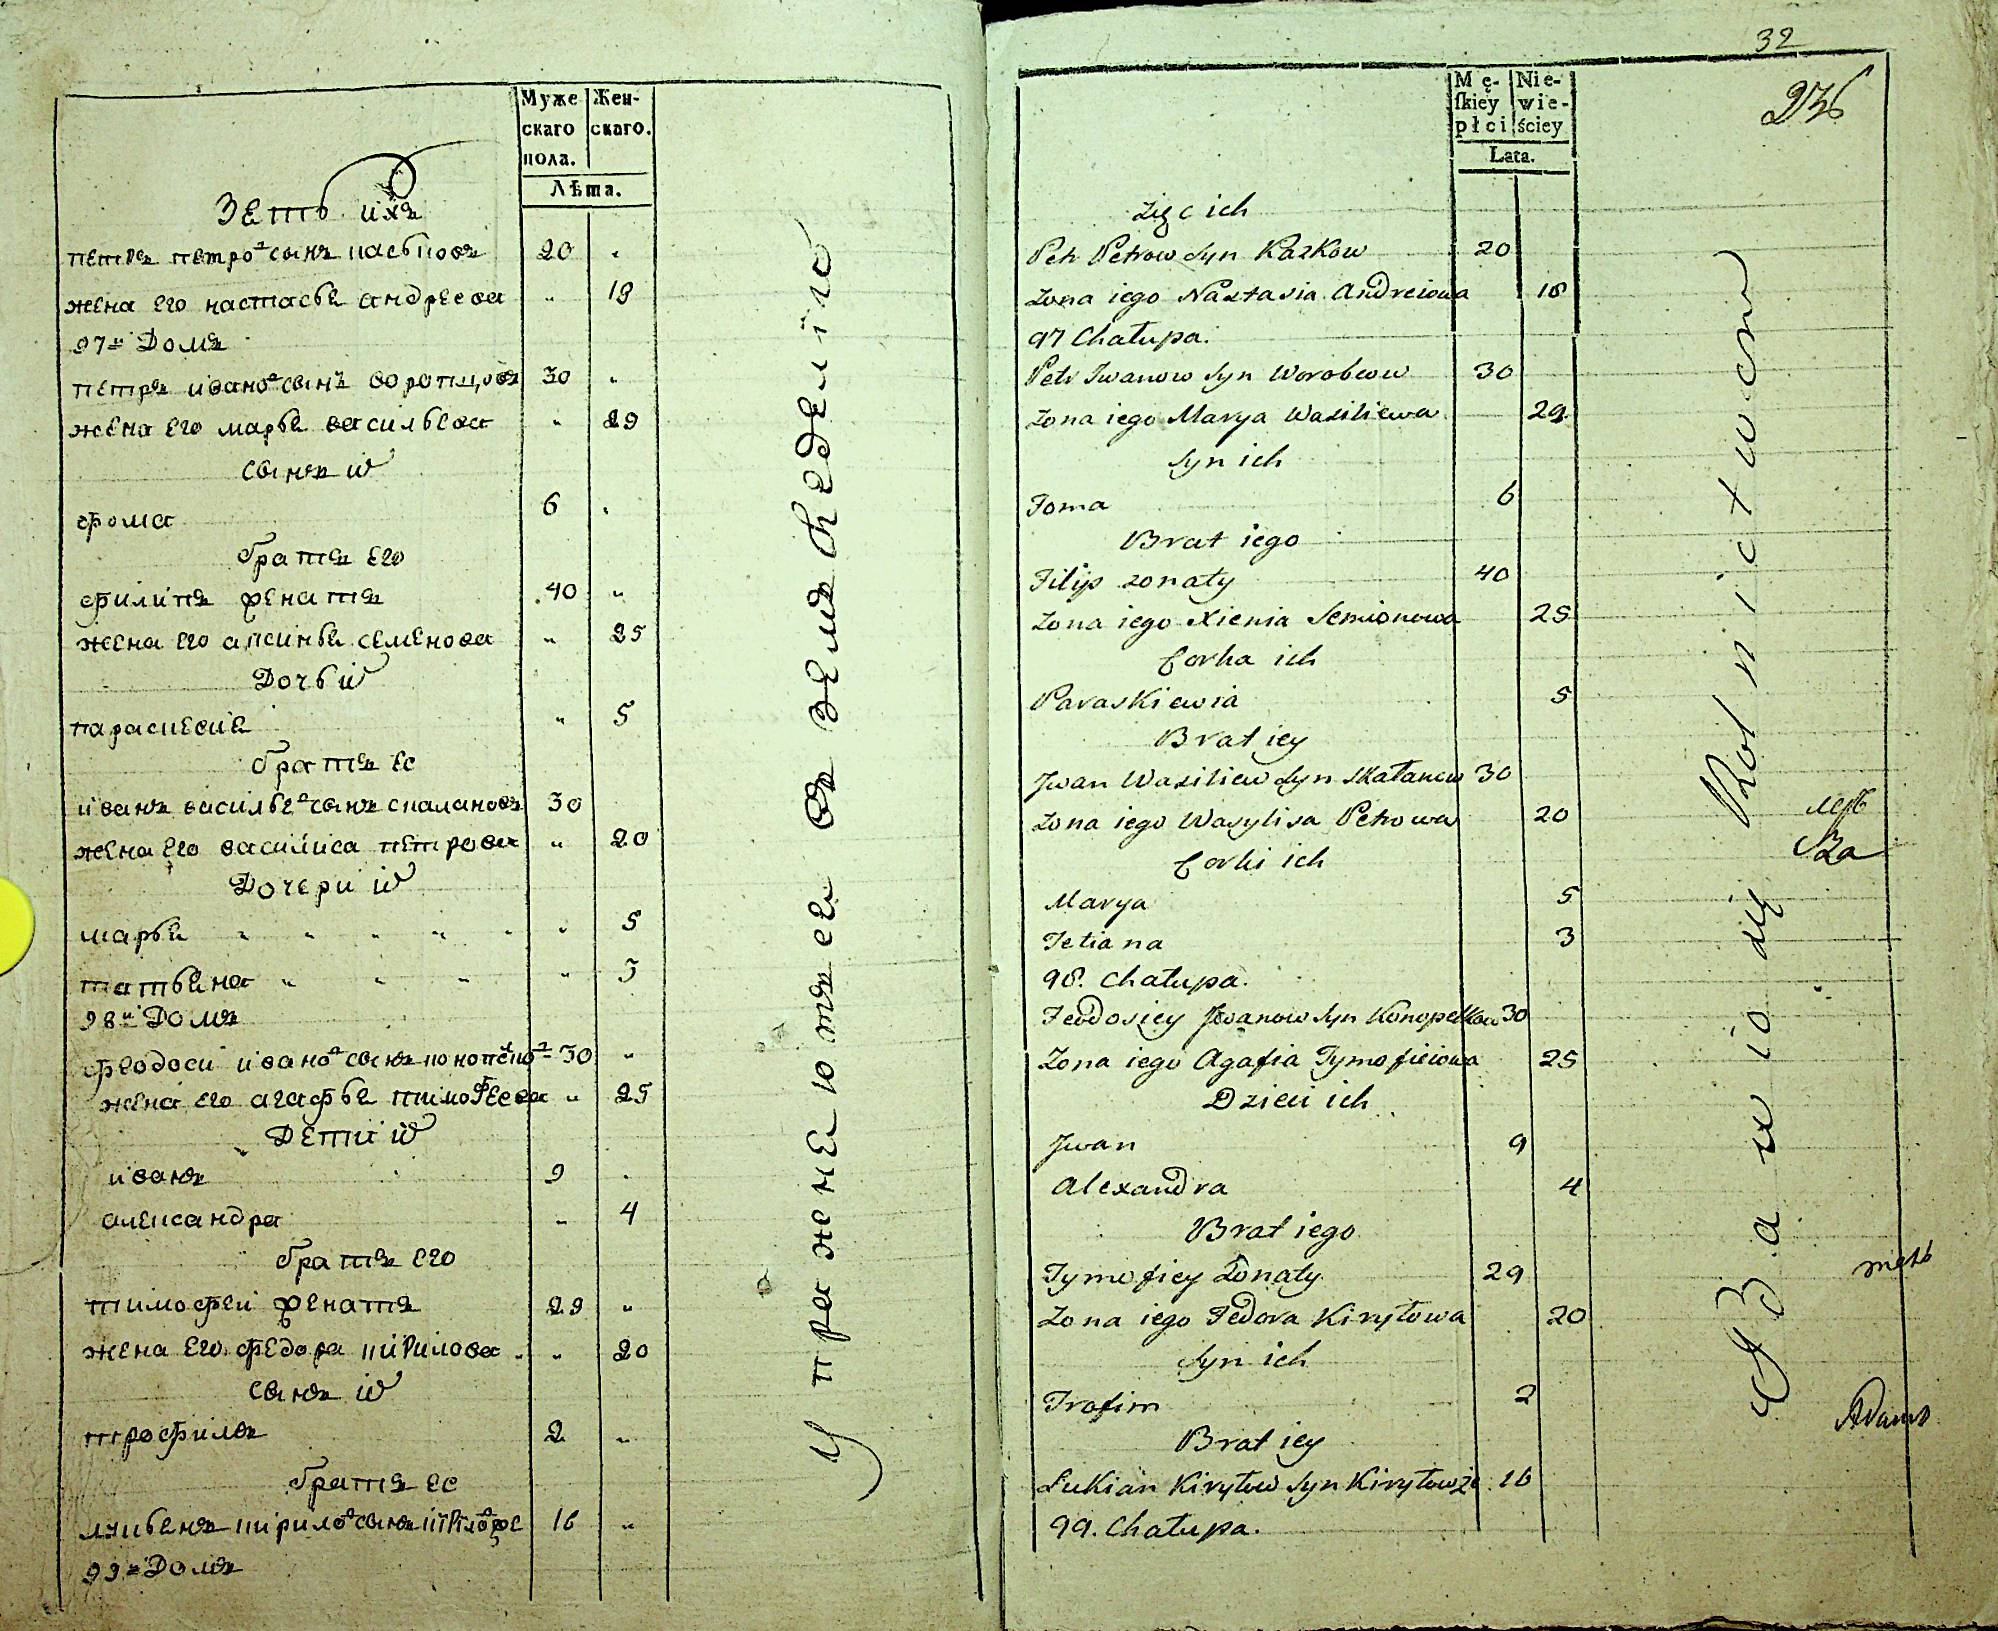 Муже Жен-
скаго скаго.
пола.
Лѣта.
Зеть ихъ
петръ петро сынъ 20 "
жена его настасье андреева " 19
97й Домъ
петръ ивано сынъ 30 "
жена его марья васильева " 29
сынъ их
фома 6 "
братъ его
филипъ женатъ 40 "
жена его аксинья семенова " 25
Дочь их
параскевие " 5
братъ ее
иванъ василье сынъ скалановъ 30
жена его василиса петрова " 20
Дочери их
марья " " " " " " 5
татьяна " " " " 3
98й Домъ
феодоси ивано сынъ 30 "
жена его агафье тимофеева " 25
Дети их
иванъ 9 "
александра " 4
братъ его
тимофей женатъ 29 "
жена его федора кирилова " 20
сынъ их
трофимъ 2 "
братъ ее
лукьянъ кирило сынъ 16 "
99й Домъ
Упражнеютъсе въ земледелию
32
236
Mę- Nie-
ſkiey wie-
płci ściey
Lata.
Zięc ich
Petr Petrow syn Kazkow 20
Zona iego Nastasia Andreiowa 18
97 Chałupa.
Petr Jwanow syn Worobiow 30
Zona iego Marya Wasiliewa 29
syn ich
Foma 6
Brat iego
Filip zonaty 40
Zona iego Xienia Semionowa 25
Corka ich
Paraskiewia 5
Brat iey
Jwan Wasiliew syn Skałanow 30
Zona iego Wasylisa Petrowa 20
Corki ich
Marya 5
Tetiana 3
98. Chałupa.
Feodosiey Jwanow syn Konopelkow 30
Zona iego Agafia Tymofieiowa 25
Dzieci ich
Jwan 9
Alexandra 4
Brat iego
Tymofiey Zonaty 29
Zona iego Fedora Kiryłowa 20
syn ich
Trofim 2
Brat iey
Łukian Kiryłow syn Kiryłowże 16
99. Chałupa.
Bawio się Rolnictwem
За
Adams